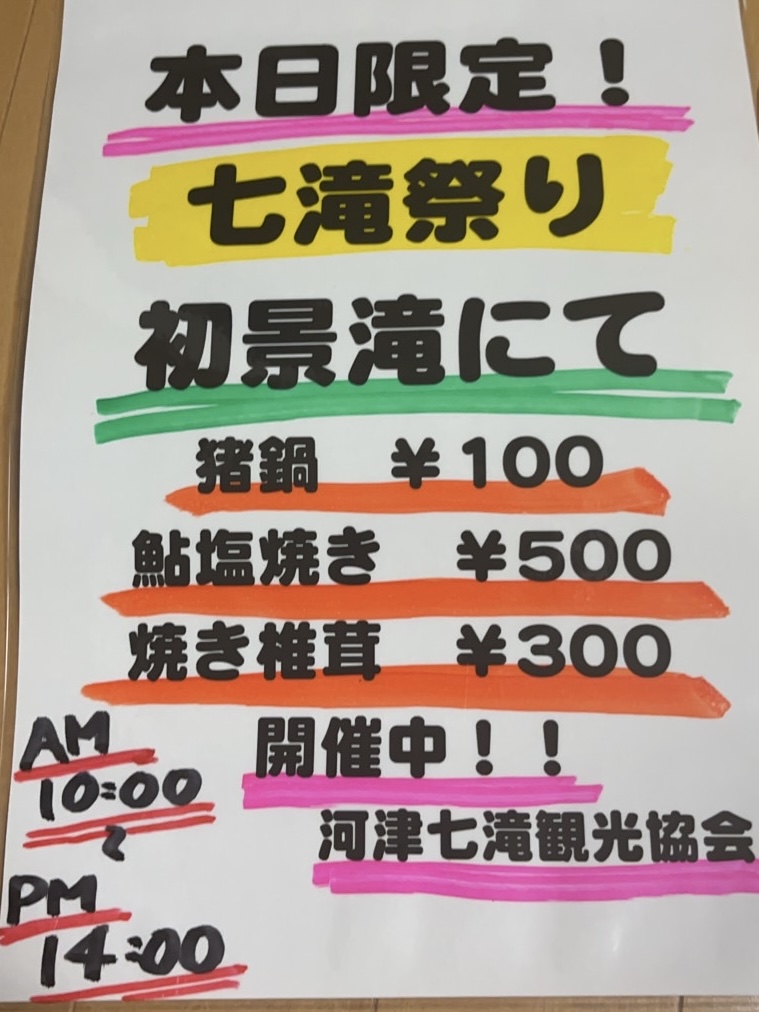 本日限定！
七滝祭り
初景滝にて
猪鍋　￥100
鮎塩焼き　￥500
焼き椎茸　￥300
開催中！！
河津七滝観光協会
AM
10:00
〜
PM
14:00